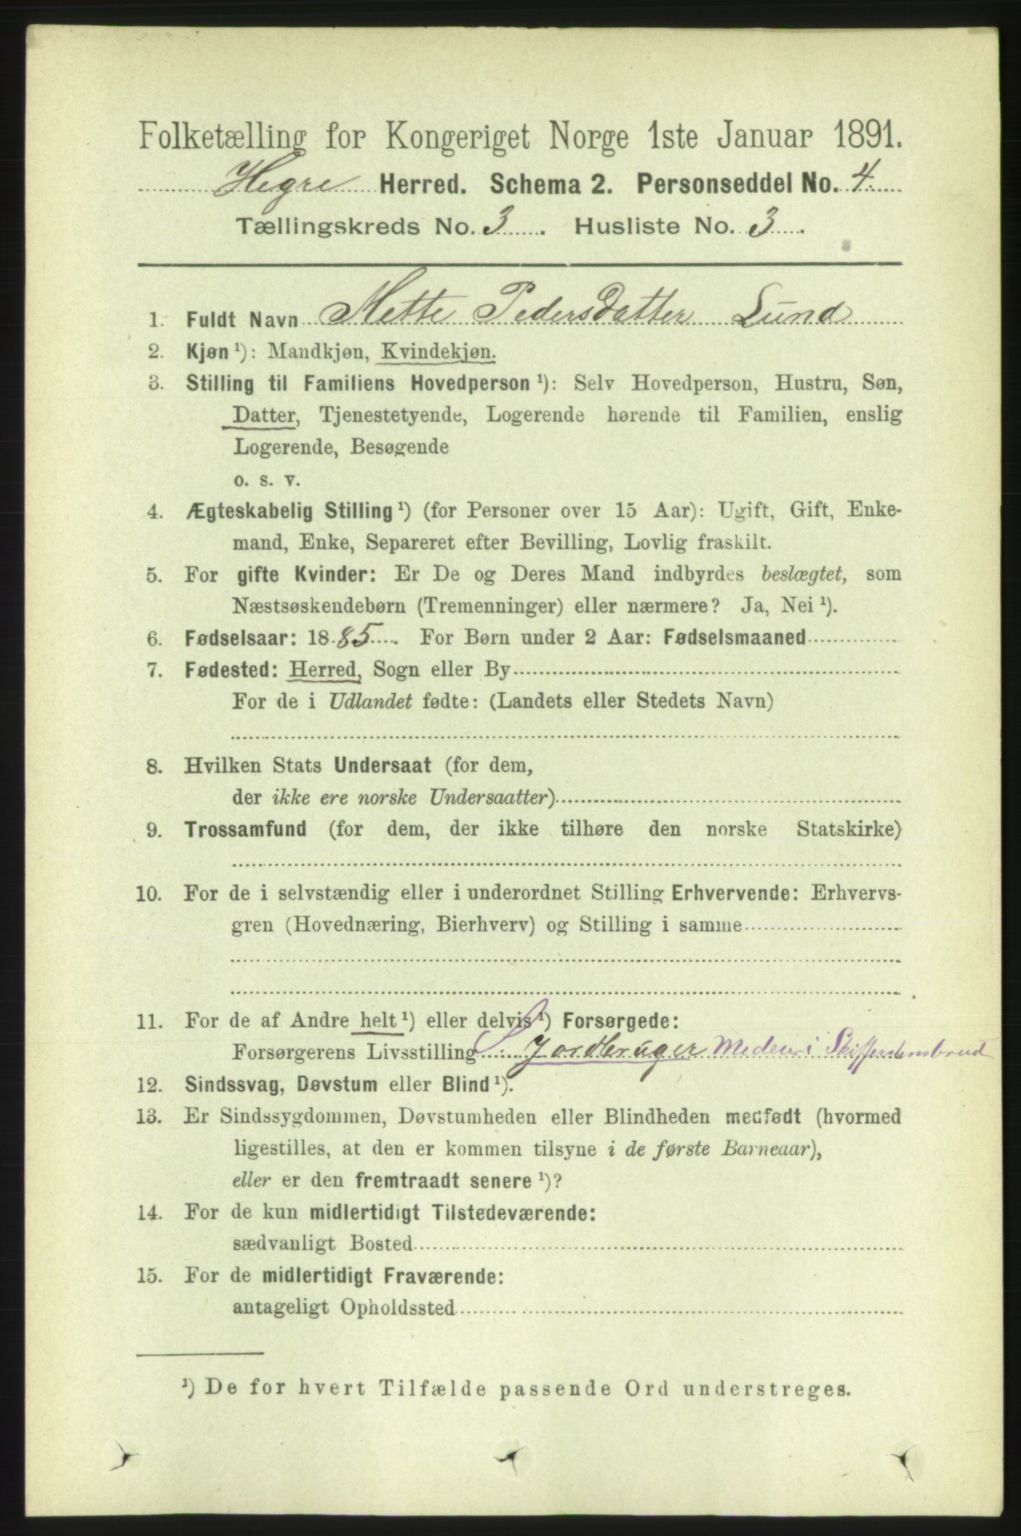 Folketælling for Kongeriget Norge 1ste Januar 1891.
Hegre Herred. Schema 2. Personseddel No. 4
Tællingskreds No. 3. Husliste No. 3.
1. Fuldt Navn Mette Pedersdatter Lund
2. Kjøn ¹): Mandkjøn, Kvindekjøn.
3. Stilling til Familiens Hovedperson ¹): Selv Hovedperson, Hustru, Søn,
Datter, Tjenestetyende, Logerende hørende til Familien, enslig
Logerende, Besøgende
o. s. v.
4. Ægteskabelig Stilling ¹) (for Personer over 15 Aar): Ugift, Gift, Enke-
mand, Enke, Separeret efter Bevilling, Lovlig fraskilt.
5. For gifte Kvinder: Er De og Deres Mand indbyrdes beslægtet, som
Næstsøskendebørn (Tremenninger) eller nærmere? Ja, Nei ¹).
6. Fødselsaar: 1885. For Børn under 2 Aar: Fødselsmaaned
7. Fødested: Herred, Sogn eller By
For de i Udlandet fødte: (Landets eller Stedets Navn)
8. Hvilken Stats Undersaat (for dem,
der ikke ere norske Undersaatter)
9. Trossamfund (for dem, der ikke tilhøre den norske Statskirke)
10. For de i selvstændig eller i underordnet Stilling Erhvervende: Erhvervs-
gren (Hovednæring, Bierhverv) og Stilling i samme
11. For de af Andre helt ¹) eller delvis ¹) Forsørgede:
Forsørgerens Livsstilling Jordbruger Medeier i
12. Sindssvag, Døvstum eller Blind ¹).
13. Er Sindssygdommen, Døvstumheden eller Blindheden medfødt (hvormed
ligestilles, at den er kommen tilsyne i de første Barneaar),
eller er den fremtraadt senere ¹)?
14. For de kun midlertidigt Tilstedeværende:
sædvanligt Bosted
15. For de midlertidigt Fraværende:
antageligt Opholdssted
¹) De for hvert Tilfælde passende Ord understreges.